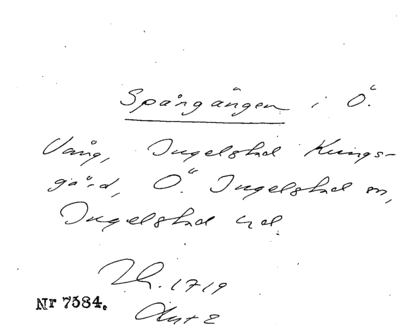 Spångången i Ö.
Vång, Ingelstad Kungs-
gård, Ö. Ingelstad sn,
Ingelstad hd.
1719
Nr 7384.